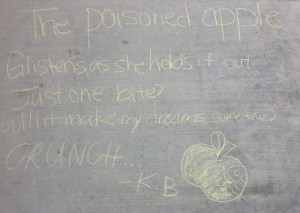 The poisoned apple
Glistens as she holds it out.
Just one bite?
Will it make my dreams come true?
CRUNCH...
-K.B